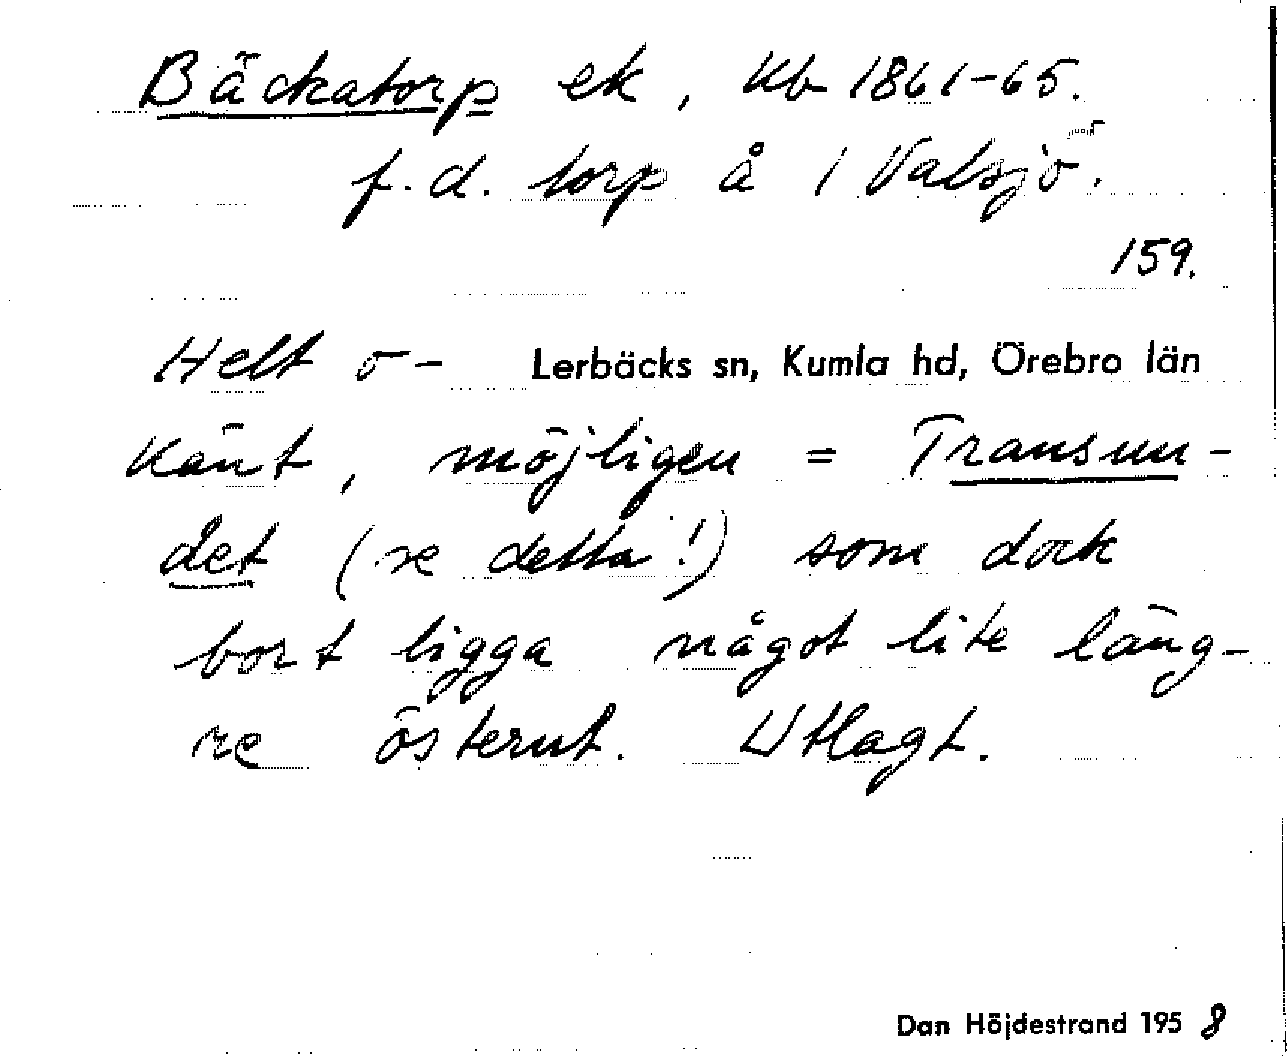 Bäckatorp ek, Kb 1861-65.
f.d. torp å 1 Valsjö.
159.
Helt o- Lerbäcks sn, Kumla hd, Örebro län
känt, möjligen = Transun-
det (se detta!) som dock
bort ligga något lite läng-
re österut. Utlagt.
Dan Höjdestrand 1958